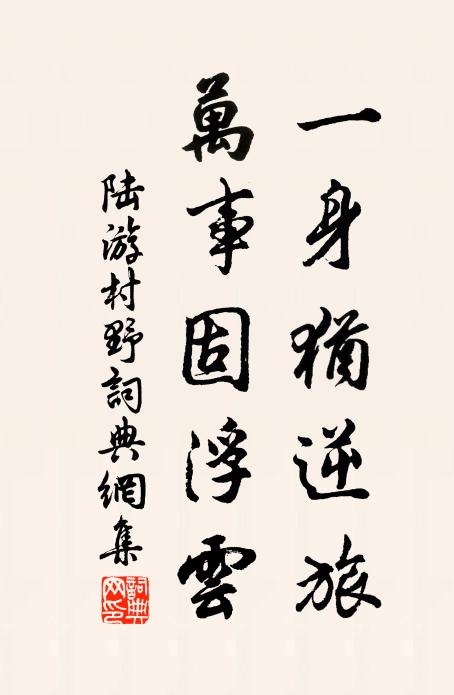 一身猶逆旅
萬事固浮雲
陆游村野詞典網集
詞典网印